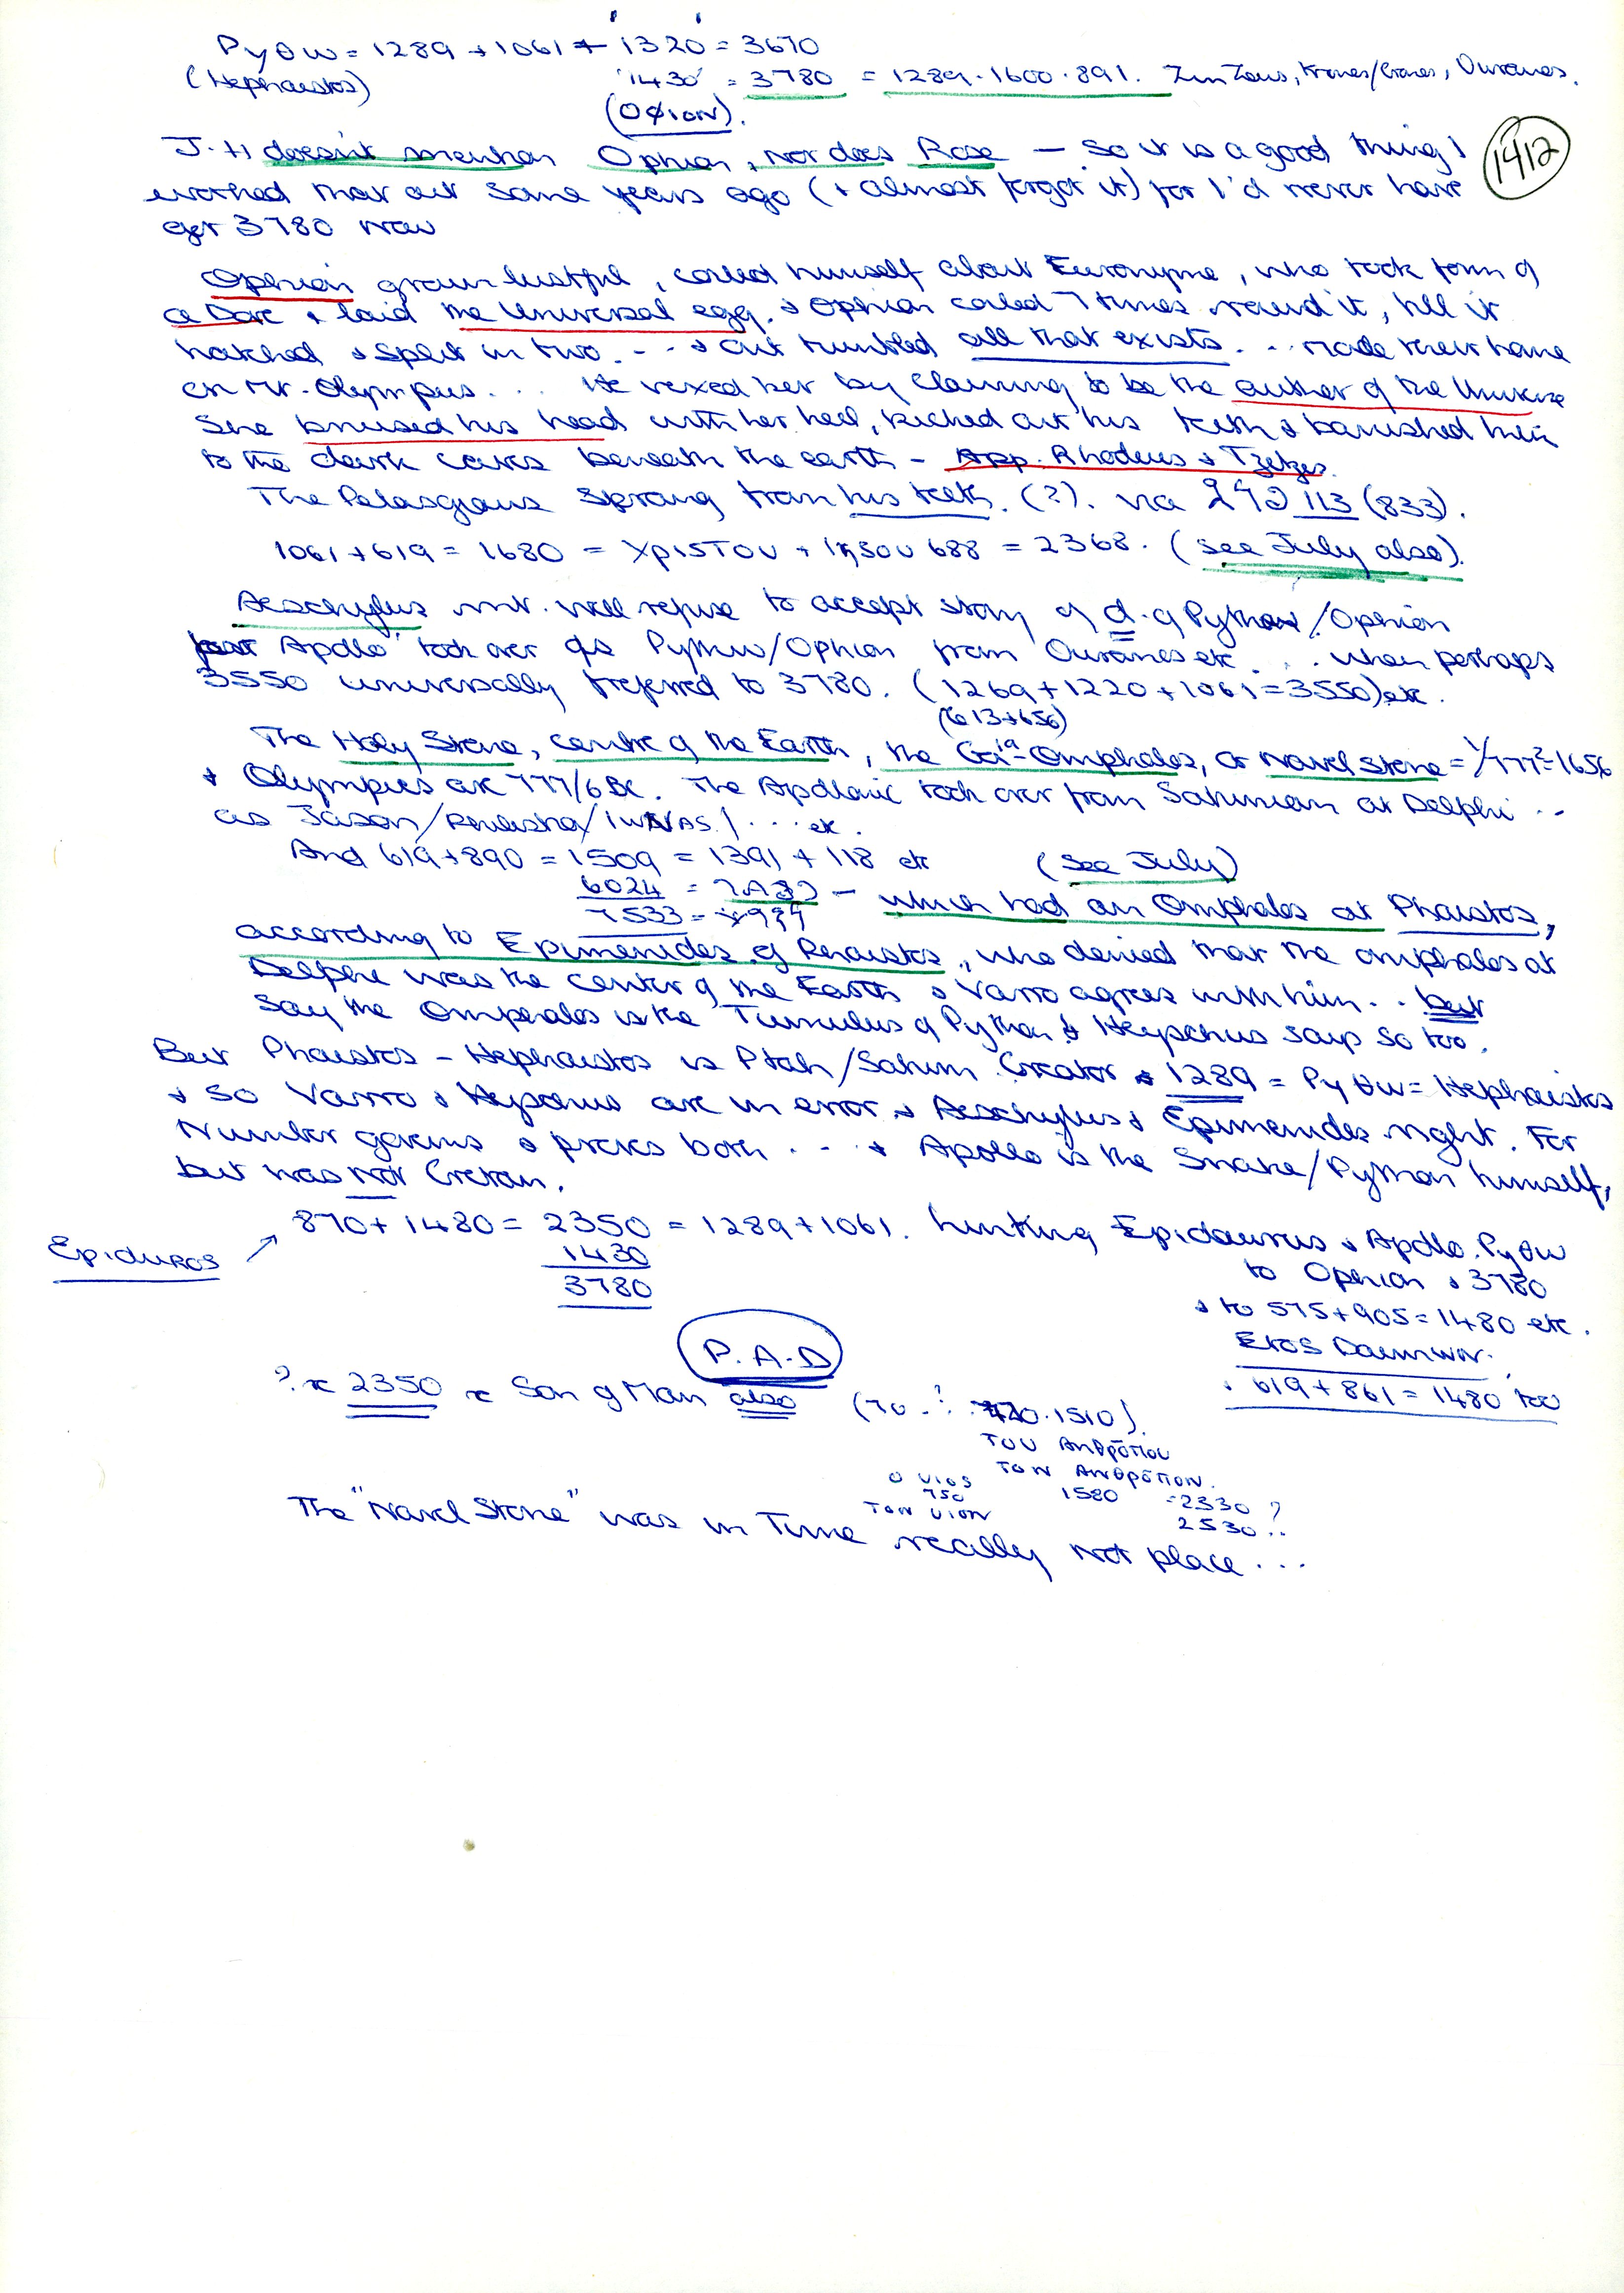 Pyθω = 1289 + 1061 + 1320 = 3670
(Hephaistos) 1430 = 3780 = 1289.1600.891. Zeus, Kronos/Cronos, Ouranos.
(Oφion).
1412
J.H doesn't mention Ophion, nor does Rose — so it is a good thing I
worked that out some years ago (& almost forgot it) for I'd never have
got 3780 now
Ophion grown lustful, coiled himself about Euronyme, who took form of
a Dove & laid the Universal egg. & Ophion coiled 7 times round it, till it
hatched & split in two. - - & out tumbled all that exists. .. made their home
on Mt. Olympus. ... He vexed her by claiming to be the author of the Universe
She bruised his head with her heel, kicked out his teeth & banished him
to the dark caves beneath the earth - App. Rhodius & Tzetzes.
The Pelasgians sprang from his teeth. (?). via 113 (833).
1061 + 619 = 1680 = Χριstou + Ιηsou 688 = 2368. (see July also).
Aeschylus will refuse to accept story of d. of Python/Ophion
Apollo took over as Python/Ophion from Ouranos etc. . . . when perhaps
3550 universally preferred to 3780. (1269 + 1220 + 1061 = 3550) etc.
(613+656)
The Holy Stone, centre of the Earth, the Gaia-Omphalos, or navel stone = 1/777 = 1656
+ Olympics are 777/6 BC. The Apollonic took over from Saturnian at Delphi ...
as Jason/ ... etc.
And 619 + 890 = 1509 = 1391 + 118 etc (see July)
6024 = - which had an Omphalos at Phaistos,
7533 =
according to Epimenides of Phaistos, who denied that the omphalos at
Delphi was the center of the Earth & Varro agrees with him.. but
say the Omphalos is the Tumulus of Python & Heyschus says so too.
But Phaistos - Hephaistos is Ptah/Saturn Creator & 1289 = Pyθω = Hephaistos
& so Varro & are in error & Aeschylus & Epimenides right. For
Number governs & proves both ... + Apollo is the Snake/Python himself,
but was not Cretan.
870 + 1480 = 2350 = 1289 + 1061. linking Epidaurus & Apollo. Pyθω
Epiduros 1430 to Ophion & 3780
3780 & to 575 + 905 = 1480 etc.
Eros Daimwn.
619 + 861 = 1480 too
P.A.D
? 2350 Son of Man also (70 .. 770.1510).
Του Ανθρōπου
Τον Ανθρōπον.
Ο υιος
750 1580 = 2330 ?
Τον υιον 2530..
The "Navel Stone" was in Time really not place ...